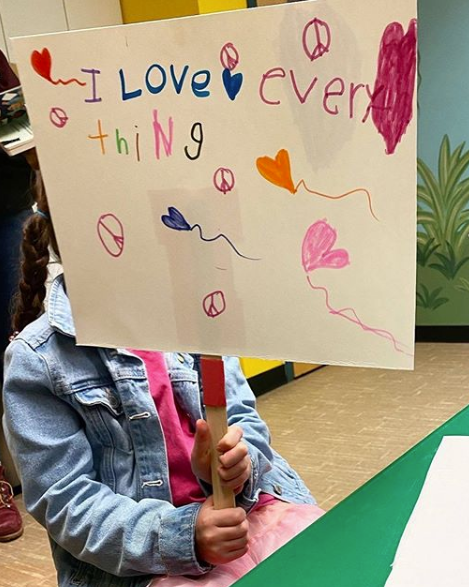 I Love every
thiNg